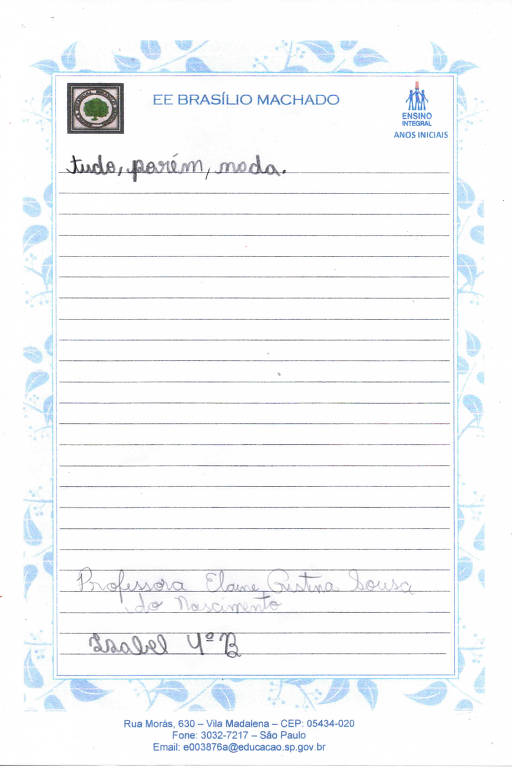 EE BRASÍLIO MACHADO
ENSINO
INTEGRAL
ANOS INICIAIS
tudo, porém, nada.
Professora Elaine Cristina Sousa
do Nascimento
Isabel 4º B
Rua Morás, 630 – Vila Madalena – CEP: 05434-020
Fone: 3032-7217 – São Paulo
Email: e003876a@educacao.sp.gov.br